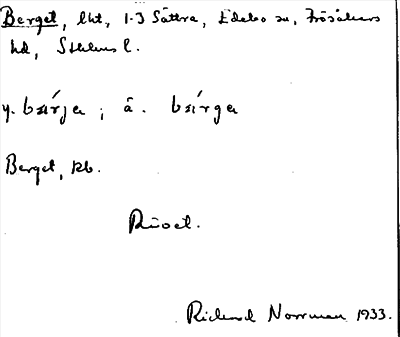 Berget, lht, 1-3 Sättra, Edebo sn, Frösåkers
hd, Sthlms l.
y. bæ̀rja ; ä. bæ̀rga
Berget, kb.
Röset.
Rickard Norrman 1933.